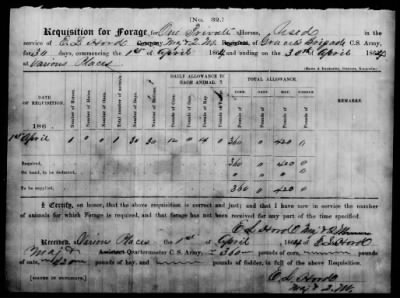 [No. 32.]
Requisition for Forage, for One Private Horse, Used in the
service of E L Hord Company, Maj & Q. M. Regiment, of Brigade C. S. Army,
for 30 days, commencing the 1st of April 1864 and ending on the 30th of April 1864,
at Various Places
DATE OF REQUISITION. Number of Horses. Number of Mules. Number of Oxen. Total number of animals Number of Days. Number of Rations. DAILY ALLOWANCE TO EACH ANIMAL. Pounds of Corn. Pounds of Oats. Pounds of Hay. TOTAL ALLOWANCE. CORN. OATS. HAY. Pounds. Pounds. Pounds. Pounds. REMARKS
186
1st April 1 0 0 1 30 30 12 0 14 0 360 0 420 0
Required, 360 0 420 0
On hand, to be deducted, 0 0 0 0
To be supplied, 360 0 420 0
I Certify, on honor, that the above requisition is correct and just; and that I have now in service the number
of animals for which Forage is required, and that forage has not been received for any part of the time specified.
E L Hord Maj & Q M
Received, Various Places the 1st of April 1864 of E L Hord
Maj & Assistant Quartermaster C. S. Army, 360 pounds of corn, pounds of
oats, 420 pounds of hay, and pounds of fodder, in full of the above Requisition.
E L Hord
Maj & Q. M.
[SIGNED IN DUPLICATE.]